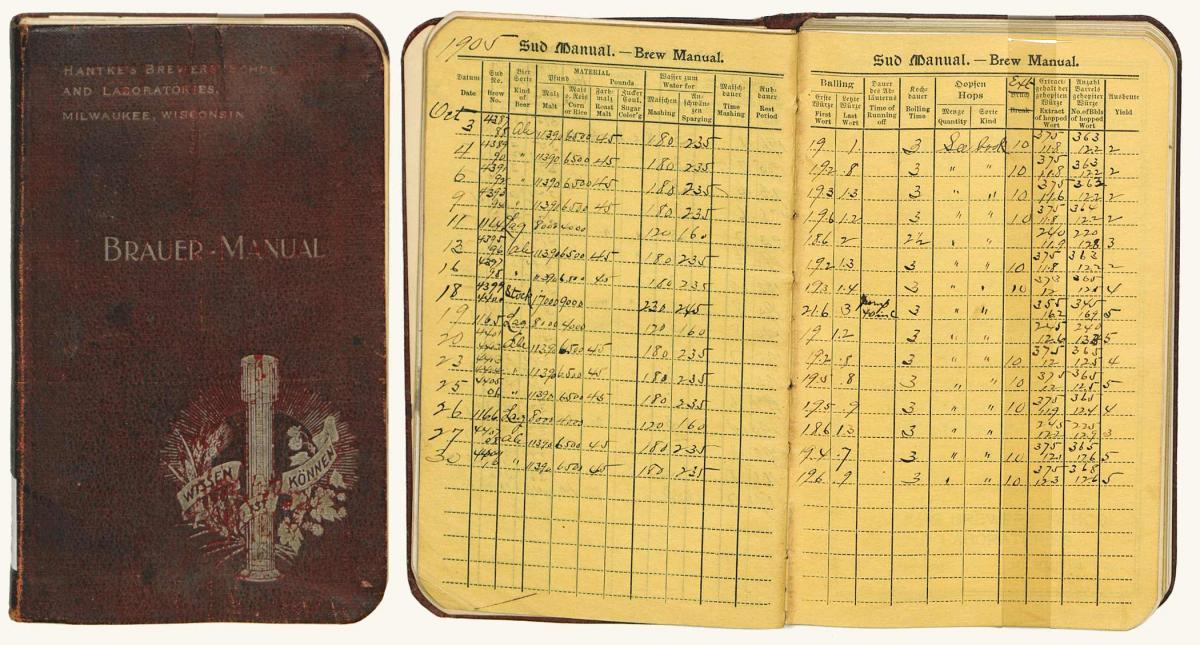 HANTKE'S BREWERS' SCHOOL
AND LABORATORIES,
MILWAUKEE, WISCONSIN
BRAUER-MANUAL
WISSEN IST KÖNNEN
1905 Sud Manual. — Brew Manual.
Datum Date
Sud No. Brew No.
Bier Sorte Kind of Beer
MATERIAL
Pfund Pounds
Malz Malt
Mais o. Reis Corn or Rice
Farbmalz Roast Malt
Zucker Coul. Sugar Color'g
Wasser zum Water for
Maischen Mashing
Anschwänzen Sparging
Maischdauer Time Mashing
Ruhdauer Rest Period
Oct
3 4387 88 Ale 11390 6500 45 180 235
4 4389 90 " 11390 6500 45 180 235
6 4391 92 " 11390 6500 45 180 235
9 4393 94 " 11390 6500 45 180 235
11 1164 Lag 8000 4000 120 160
13 4395 96 Ale 11390 6500 45 180 235
16 4397 98 " 11390 6500 45 180 235
18 4399 4400 Stock 17000 9000 230 245
19 1165 Lag 8000 4000 120 160
20 4401 Ale 11390 6500 45 180 235
23 " 11390 6500 45 180 235
25 4405 06 " 11390 6500 45 180 235
26 1166 Lag 8000 4000 120 160
27 4407 08 Ale 11390 6500 45 180 235
30 4409 10 " 11390 6500 45 180 235
Sud Manual. — Brew Manual.
Balling
Erste Würze First Wort
Letzte Würze Last Wort
Dauer des Abläuterns Time of Running off
Kochdauer Boiling Time
Hopfen Hops
Menge Quantity
Sorte Kind
Ext
Bruch Break
Extractgehalt der gehopften Würze Extract of hopped Wort
Anzahl Barrels gehopfter Würze No. of Bbls of hopped Wort
Ausbeute Yield
19 1 3 10 375 11.8 363 12.2 2
19.2 .8 3 " " 10 375 11.8 363 12.2 2
19.3 1.3 3 " " 10 375 11.6 363 12.2 2
19.6 1.2 3 " " 10 375 11.8 364 12.2 2
18.6 2 2½ " " 240 11.9 220 12.8 3
19.2 1.3 3 " " 10 375 11.8 363 12.2 2
19.3 1.4 3 " " 10 373 12 365 4
21.6 3 3 " " 355 16.2 345 16.9 5
19 1.2 3 " " 245 12.6 240 5
19.2 .8 3 " " 10 375 12 365 12.5 4
19.5 .8 3 " " 10 375 12 365 12.5 5
19.5 .9 3 " " 10 375 11.9 365 12.4 4
18.6 1.3 3 " " 245 225 12.9 3
19.4 .7 3 " " 10 375 365 12.6 5
19.6 .9 3 " " 10 375 12.3 368 12.6 5